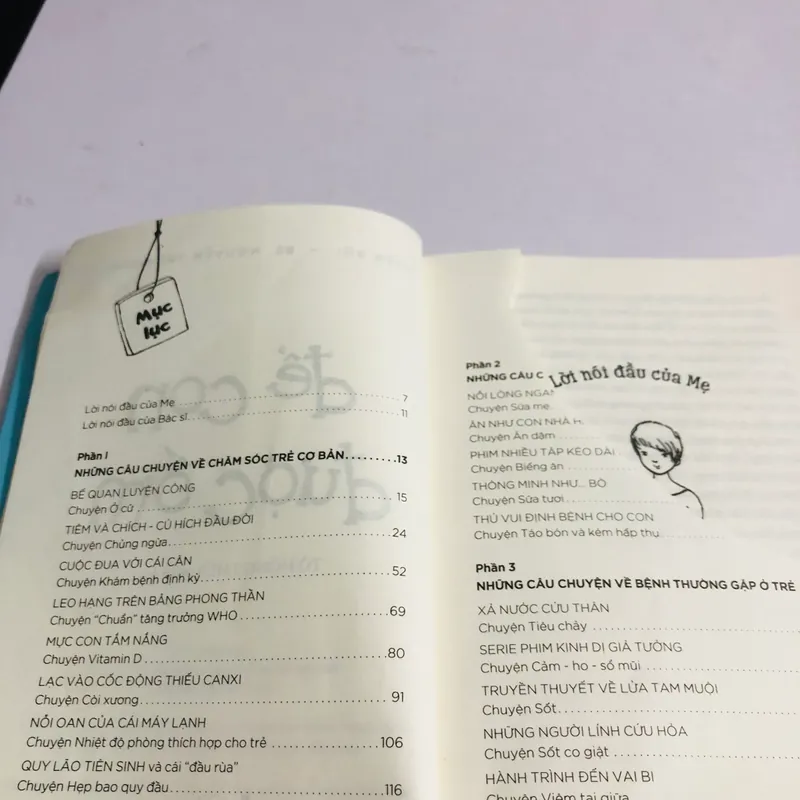 Mục
lục
Lời nói đầu của Mẹ 7
Lời nói đầu của Bác sĩ 11
Phần I
NHỮNG CÂU CHUYỆN VỀ CHĂM SÓC TRẺ CƠ BẢN........13
BẾ QUAN LUYỆN CÔNG
Chuyện Ở cữ 15
TIÊM VÀ CHÍCH - CÚ HÍCH ĐẦU ĐỜI
Chuyện Chủng ngừa 24
CUỘC ĐUA VỚI CÁI CÂN
Chuyện Khám bệnh định kỳ 52
LEO HẠNG TRÊN BẢNG PHONG THẦN
Chuyện "Chuẩn" tăng trưởng WHO 69
MỰC CON TẮM NẮNG
Chuyện Vitamin D 80
LẠC VÀO CỐC ĐỘNG THIẾU CANXI
Chuyện Còi xương 91
NỖI OAN CỦA CÁI MÁY LẠNH
Chuyện Nhiệt độ phòng thích hợp cho trẻ 106
QUY LÃO TIÊN SINH và cái "đầu rùa"
Chuyện Hẹp bao quy đầu 116
Phần 2
NHỮNG CÂU C
NỖI LÒNG NGÂ
Chuyện Sữa mẹ
ĂN NHƯ CON NHÀ H
Chuyện Ăn dặm
PHIM NHIỀU TẬP KÉO DÀI
Chuyện Biếng ăn
THÔNG MINH NHƯ... BÒ
Chuyện Sữa tươi
THÚ VUI ĐỊNH BỆNH CHO CON
Chuyện Táo bón và kém hấp thu
Lời nói đầu của Mẹ
Phần 3
NHỮNG CÂU CHUYỆN VỀ BỆNH THƯỜNG GẶP Ở TRẺ
XẢ NƯỚC CỨU THÂN
Chuyện Tiêu chảy
SERIE PHIM KINH DỊ GIẢ TƯỞNG
Chuyện Cảm - ho - sổ mũi
TRUYỀN THUYẾT VỀ LỬA TAM MUỘI
Chuyện Sốt
NHỮNG NGƯỜI LÍNH CỨU HỎA
Chuyện Sốt co giật
HÀNH TRÌNH ĐẾN VAI BI
Chuyện Viêm tai giữa